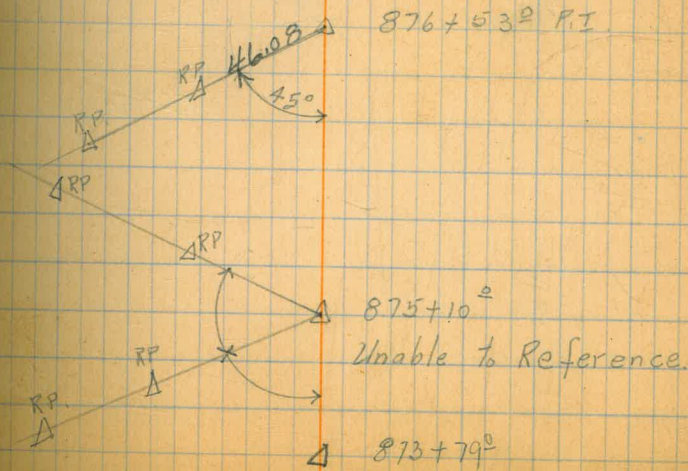 876+53º P.I.
46.08
RP
45º
RP
RP
RP
875+10º
Unable to Reference.
RP
RP.
873+79º